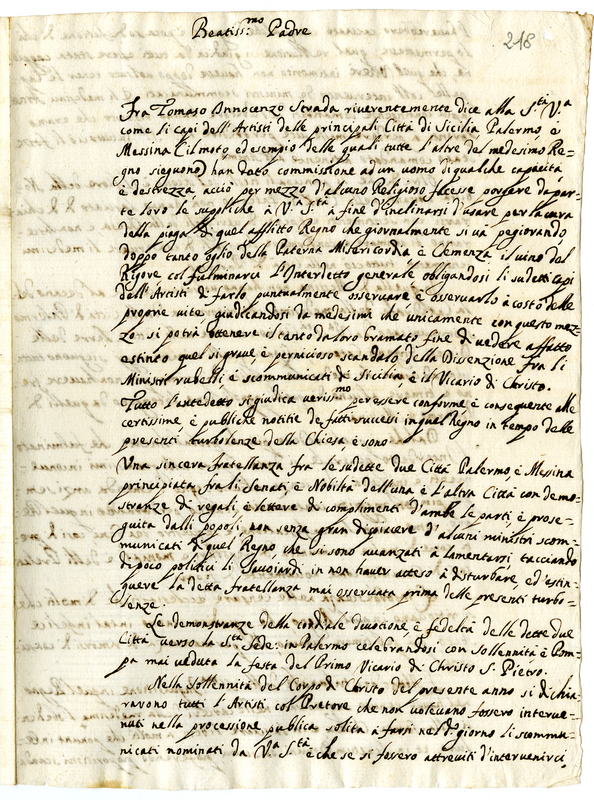 Beatiss:mo Padre
218
Fra Tomaso Innocenzo Strada riverentemente dice alla S.tà V.a
come li capi dell'Artisti delle principali Città di Sicilia, Palermo, è
Messina (il moto, ed esempio delle quali tutte l'altre del medesimo Re=
gno sieguono) han dato commissione ad un uomo di qualche capacità
è destrezza acciò per mezzo d'alcuno Religioso facesse porgere da par=
te loro le suppliche à V.a S.tà à fine d'inclinarsi d'usare per la cura
della piaga di quel afflitto Regno che giornalmente si và pegiorando
doppo tanto oglio della Paterna Misericordia è Clemenza il vino del
Rigore col fulminarci l'Interdetto generale obligandosi li sudetti capi
dell'Artisti di farlo puntualmente osservare è osservarlo à costo delle
proprie vite giudicandosi da medesimi che unicamente con questo mez=
zo si potrà ottenere il tanto da loro bramato fine di vedere affatto
estinto quel sì grave è pernicioso scandalo della Dissenzione fra li
Ministri rubelli, è scommunicati di Sicilia, è il Vicario di Christo.
Tutto l'antedetto si giudica veriss.mo per essere conforme è consequente alle
certissime, è publiche notitie de fatti succesi in quel Regno in tempo delle
presenti turbolenze della Chiesa, è sono
Una sincera fratellanza fra le sudette due Città Palermo, è Messina
principiata fra li Senati, è Nobiltà dell'una è l'altra Città con demo=
stranze di regali, è lettere di complimenti d'ambe le parti, è prose=
guita dalli popoli, non senza gran dispiacere d'alcuni ministri scom=
municati di quel Regno, che si sono avanzati à lamentarsi, tacciando
di poco politici li Savoiardi in non haver atteso à disturbare, ed estin=
guere la detta fratellanza mai osservata prima delle presenti turbo=
lenze.
Le demonstranze della cordiale devotione, è fedeltà delle dette due
Città verso la S.ta Sede: in Palermo celebrandosi con sollennità è Pom=
pa mai veduta la festa del Primo Vicario di Christo S. Pietro.
Nella sollennità del Corpo di Christo del presente anno si dichia=
ravono tutti l'Artisti col Pretore che non volevano fossero interve=
nuti nella processione publica solita à farsi nel d.o giorno li scommu=
nicati nominati da V.a S.tà è che se si fossero attreviti d'intervenirci,